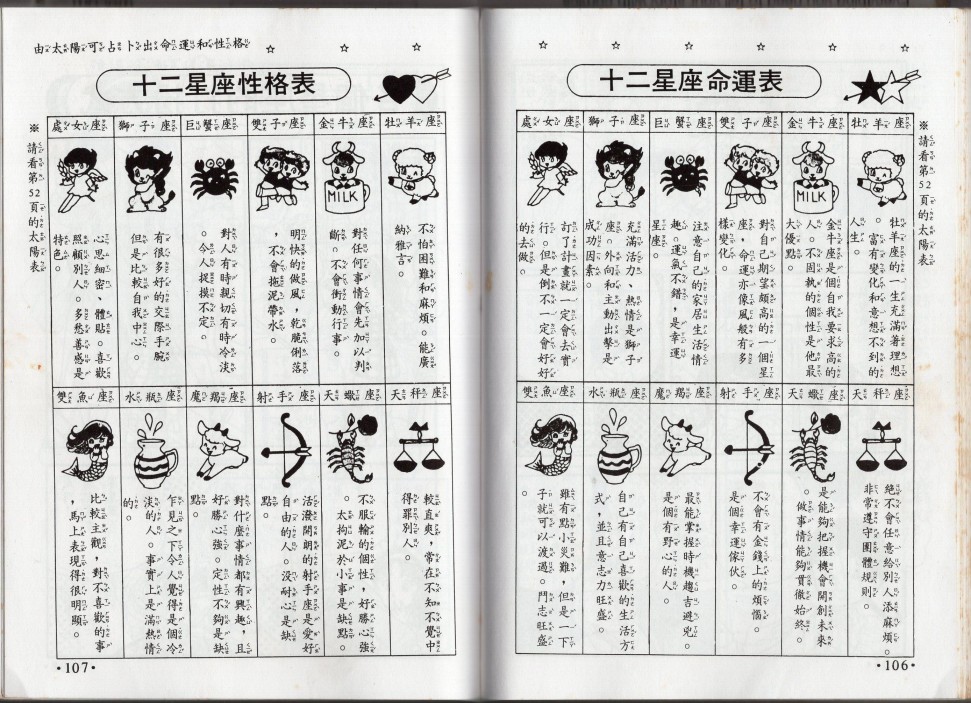 十二星座命運表
※請看第52頁的太陽表
牡羊座
牡羊座的一生充滿著理想
。富有變化和意想不到的
人生。
金牛座
金牛座是個自我要求高的
人。不固執的個性是他最
大優點。
雙子座
對自己期望頗高的一個星
座，命運亦像風般有多
樣變化。
巨蟹座
注意自己的家居生活情
趣。運氣不錯，是幸運
星座。
獅子座
充滿活力、熱情是獅子
座。外向和主動出擊是
成功因素。
處女座
訂了計畫就一定會去實
行。但是倒不一定會好好
的去做。
天秤座
絕不會任意給別人添麻煩。
非常遵守團體規則。
天蠍座
是能夠把握機會開創未來
。做事情能夠貫徹始終。
射手座
不會有金錢上的煩惱。
是個幸運傢伙。
魔羯座
最能掌握時機趨吉避兇
是個有野心的人。
水瓶座
自己有自己喜歡的生活方
式，並且意志力旺盛。
雙魚座
雖有點小災難，但是一下
子就可以渡過。鬥志旺盛
。
MILK
•106•
由太陽可占卜出命運和性格
十二星座性格表
牡羊座
不怕困難和麻煩。能廣
納雅言。
金牛座
對任何事情會先加以判
斷。不會衝動行事。
雙子座
明快的做風，乾脆俐落
，不會拖泥帶水。
巨蟹座
對人有時親切有時冷淡
。令人捉摸不定。
獅子座
有很多好的交際手腕
但是比較自我中心。
處女座
心思細密、體貼。喜歡
照顧別人。多愁善感是
特色。
天秤座
較直爽，常在不知不覺中
得罪別人。
天蠍座
不服輸的個性，好勝心強
。太拘泥於小事是缺點。
射手座
活潑開朗的射手座是愛好
自由的人。沒耐心是缺
點。
魔羯座
對什麼事情都有興趣，且
好勝心強。定性不夠是缺
點。
水瓶座
乍見之下令人覺得是個冷
淡的人。事實上是滿熱情
的。
雙魚座
比較主觀，對不喜歡的事
，馬上表現得很明顯。
MILK
※請看第52頁的太陽表
•107•